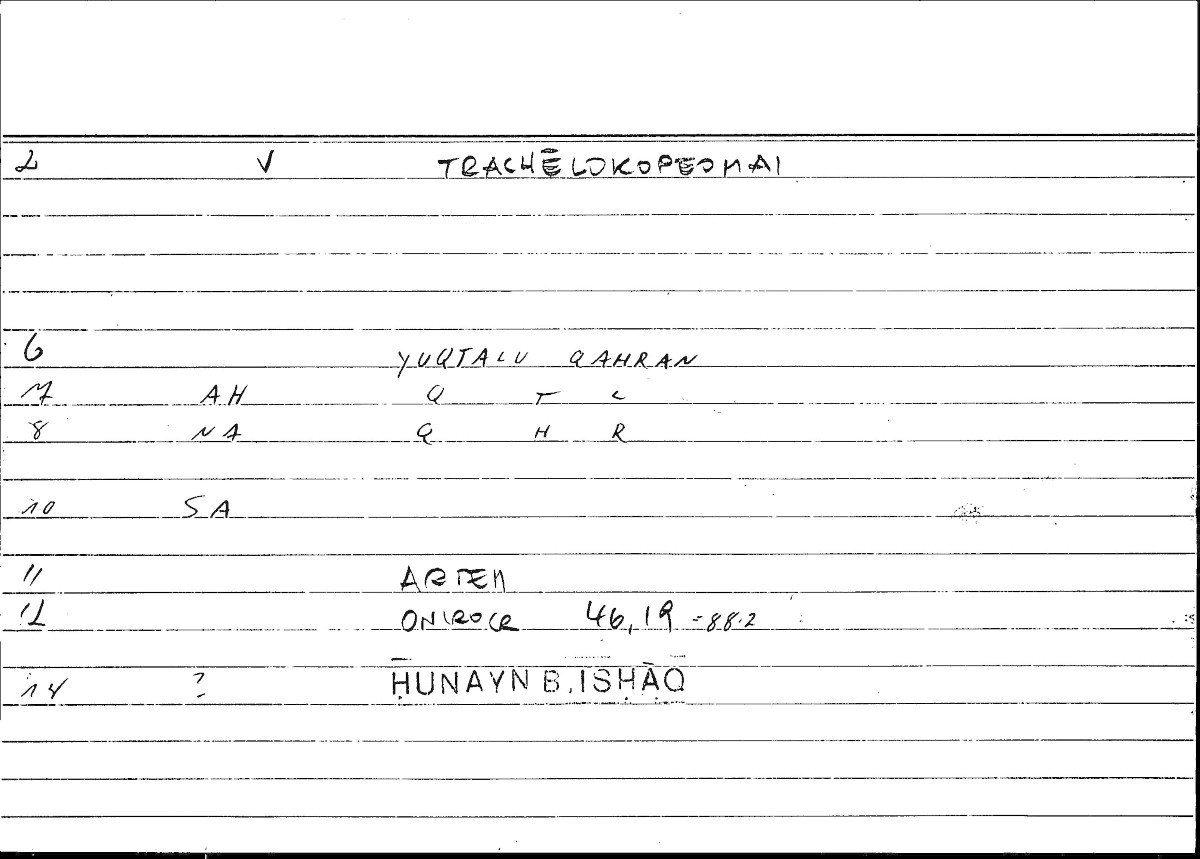 2 V TRACHĒLOKOPEOMAI
6 YUQTALU QAHRAN
7 AH Q T L
8 NA Q H R
10 SA
11 ARTEM
12 ONIROCR 46,19 =88.2
14 ? ḤUNAYN B. ISḤĀQ